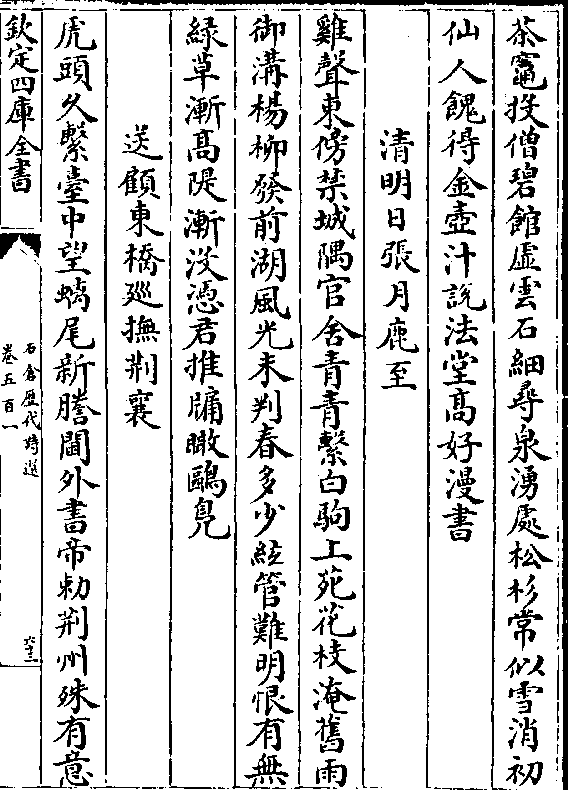 茶竈投僧碧館虛雲石細尋泉湧處松杉常似雪消初
仙人餽得金壺汁說法堂髙好漫書
清明日張月鹿至
雞聲東傍禁城隅官舍青青繫白駒上苑花枝淹舊雨
御溝楊柳發前湖風光未判春多少絃管難明恨有無
緑草漸髙隄漸没憑君推牗瞰鷗鳬
送顧東橋廵撫荆襄
虎頭久繫臺中望螭尾新謄閫外書帝勅荆州殊有意
欽定四庫全書
石倉歴代詩選
卷五百一
六十三